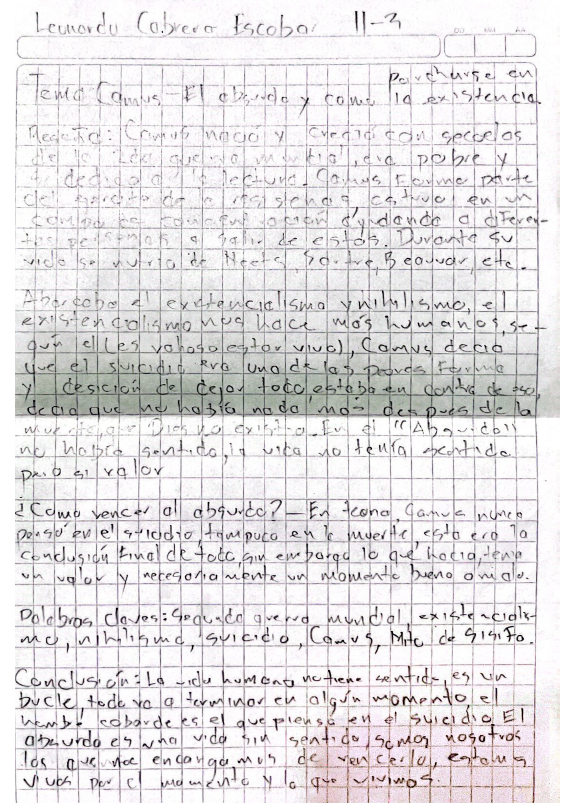 Leonardo Cabrera Escobar 11-3
DD MM AA
porcharse en
Tema Camus - El absurdo y como la existencia.
Reseña: Camus nació y creció con secuelas
de la 2da guerra mundial, era pobre y
dedicó a la lectura. Camus forma parte
del ejercito de la resistencia, estuvo en un
campo de concentración ayudando a diferen-
tes personas a salir de estos. Durante su
vida se nutria de Sartre, Beauvar, etc.
Abarcaba el existencialismo y nihilismo, el
existencialismo nos hace más humanos, se-
gún el (es valioso estar vivo), Camus decia
que el suicidio era una de las peores forma
y desición de dejar todo, estaba en contra de eso,
decia que no había nada más despues de la
muerte, que Dios no existia. En el "Absurdo"
no habia sentido, la vida no tenía sentido
pero si valor
¿Como vencer al absurdo? - En teoria, Camus nunca
pensó en el suicidio, tampoco en la muerte, esta era la
conclusión final de todo, sin embargo lo que hacia, tenia
un valor y necesariamente un momento bueno o malo.
Palabras claves: Segunda guerra mundial, existencialis-
mo, nihilismo, suicidio, Camus, Mito de Sisifo.
Conclusión: La vida humana no tiene sentido, es un
bucle, todo va a terminar en algún momento el
hombre cobarde es el que piensa en el suicidio El
absurdo es una vida sin sentido, somos nosotros
los que nos encargamos de vencerlo, estamos
vivos por el momento y lo que vivimos.